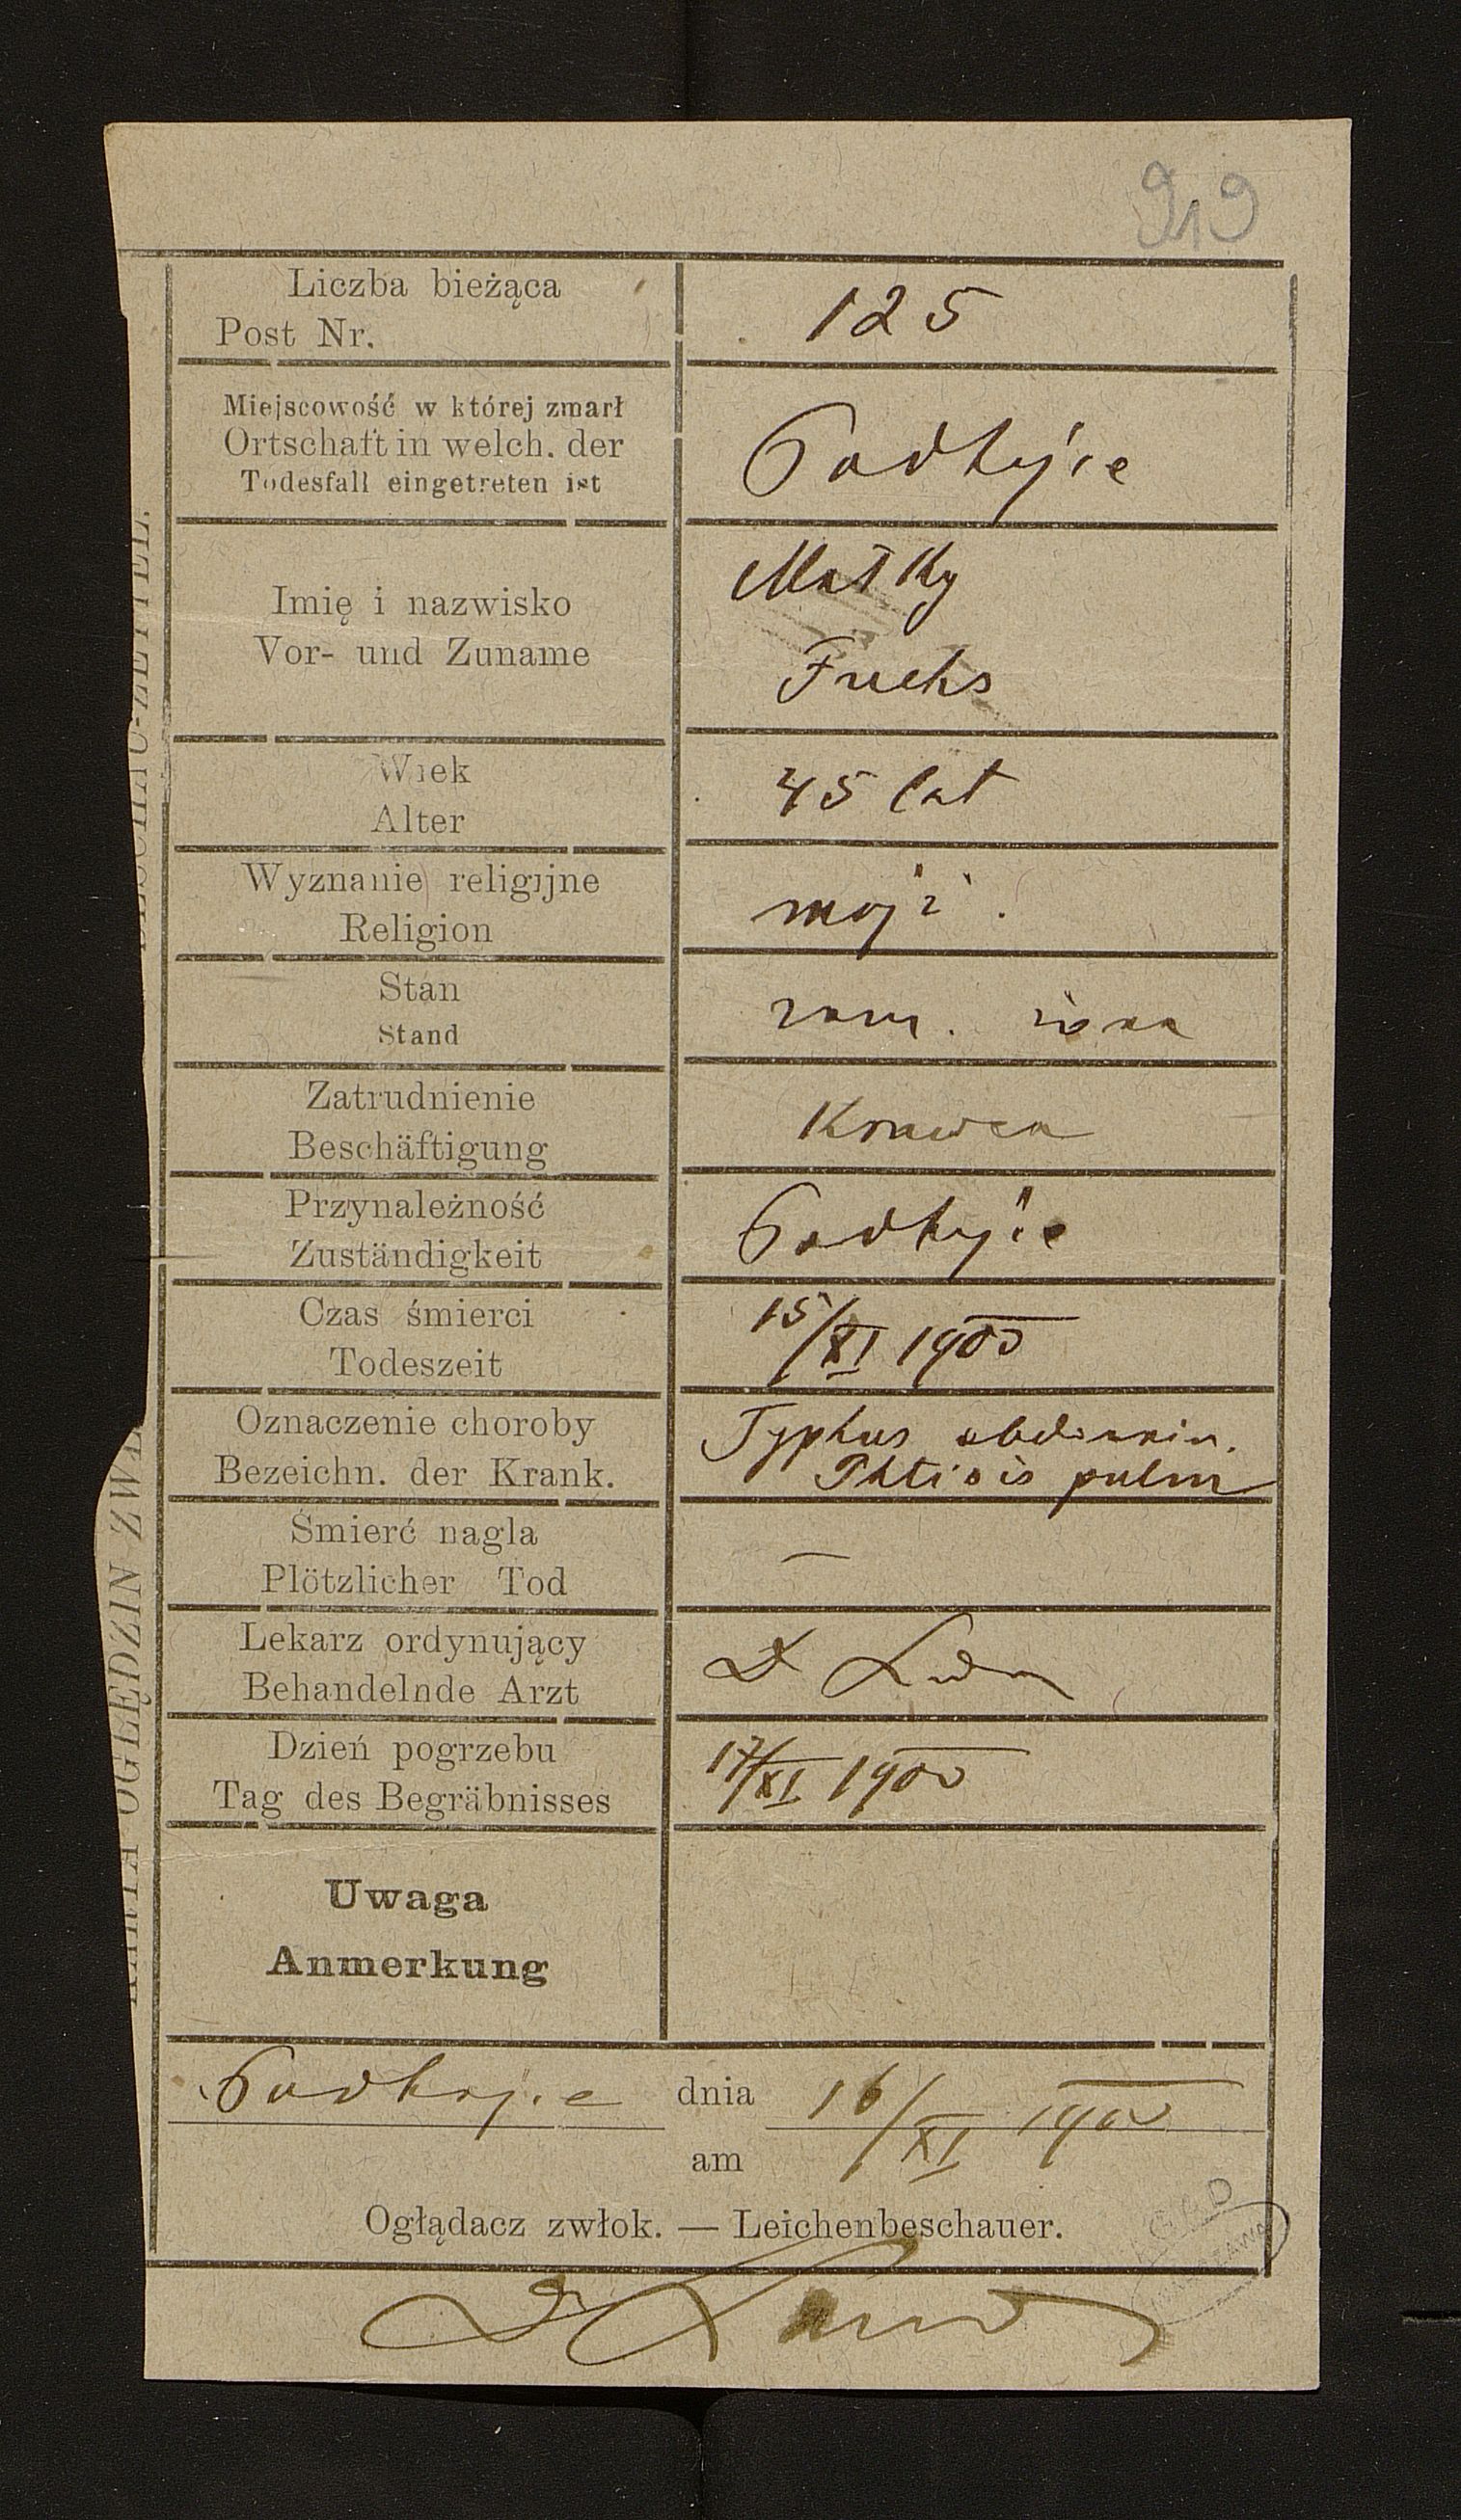 919
Liczba bieżąca
Post Nr.
125
Miejscowość w której zmarł
Ortschaft in welch. der
Todesfall eingetreten ist
Podhajce
Imię i nazwisko
Vor- und Zuname
Fuchs
Wiek
Alter
45 lat
Wyznanie religijne
Religion
mojż.
Stan
Stand
zam. żona
Zatrudnienie
Beschäftigung
Krawca
Przynależność
Zuständigkeit
Podhajce
Czas śmierci
Todeszeit
15/XI 1900
Oznaczenie choroby
Bezeichn. der Krank.
Typhus abdomin.
Phtisis pulm
Śmierć nagla
Plötzlicher Tod
—
Lekarz ordynujący
Behandelnde Arzt
Dr
Dzień pogrzebu
Tag des Begräbnisses
17/XI 1900
Uwaga
Anmerkung
Podhajce dnia 16/XI 1900
am
Oglądacz zwłok. — Leichenbeschauer.
Dr
AGAD
WARSZAWA
OGLĘDZIN